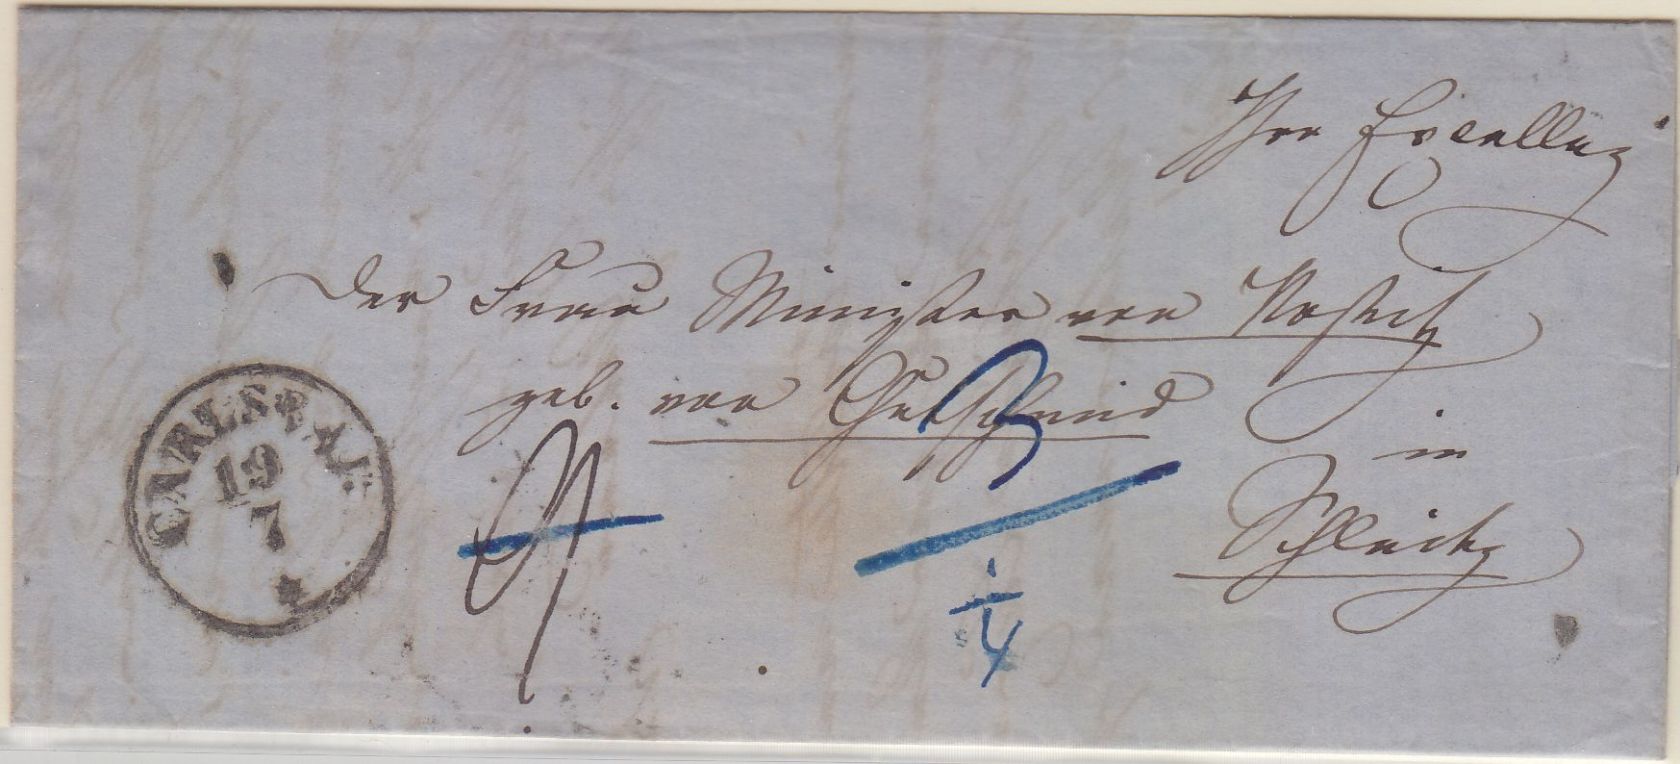 Ihro Excellenz
Der Frau Minister von Nostitz
geb. von Gutschmid
in
Schleitz
CARLSBAD.
19
7
9
3
1
4